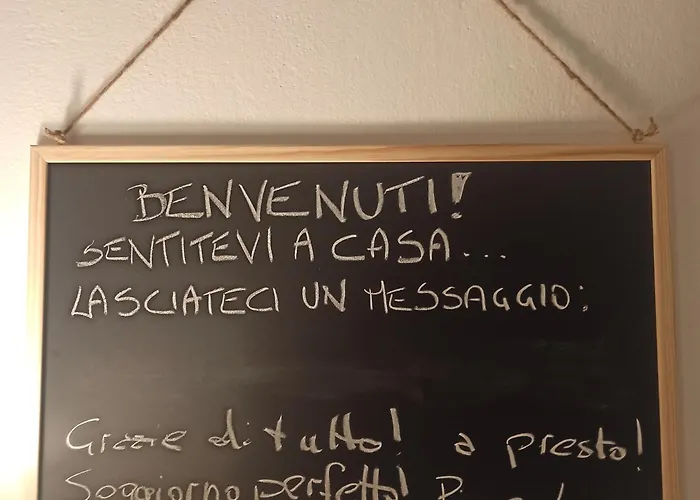 BENVENUTI!
SENTITEVI A CASA...
LASCIATECI UN MESSAGGIO:
Grazie di tutto! a presto!
Soggiorno perfetto!